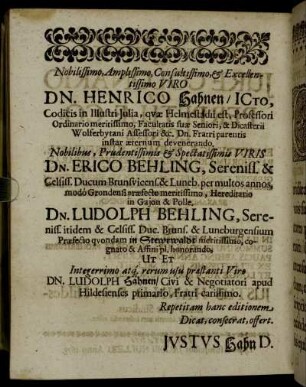 Nobilissimo, Amplissimo, Consultissimo, & Excellen-
tissimo VIRO
DN. HENRICO Hahnen / ICto,
Codicis in Illustri Julia, quæ Helmestadii est, Professori
Ordinario meritissimo, Facultatis suæ Seniori, & Dicasterii
Wolferbytani Assessori &c. Dn. Fratri parentis
instar æternum devenerando,
Nobilibus, Prudentissimis & Spectatissimis VIRIS
DN. ERICO BEHLING, Sereniss. &
Celsiss. Ducum Brunsvicens. & Luneb. per multos annos,
modò Grondensi præfecto meritissimo, Hereditario
in Gajon & Polle,
DN. LUDOLPH BEHLING, Sere-
niss. itidem & Celsiss. Duc. Brunf. & Luneburgensium
Præfecto quondam in Steurwaldt meritissimo, co-
gnato & Affini pl. honorando,
UT ET
Integerrimo atq; rerum usu præstanti Viro
DN. LUDOLPH Hahnen / Civi & Negotiatori apud
Hildesienses primario, Fratri carissimo.
Repetitam hanc editionem
Dicat, consecrat, offert.
JVSTVS Hahn D.